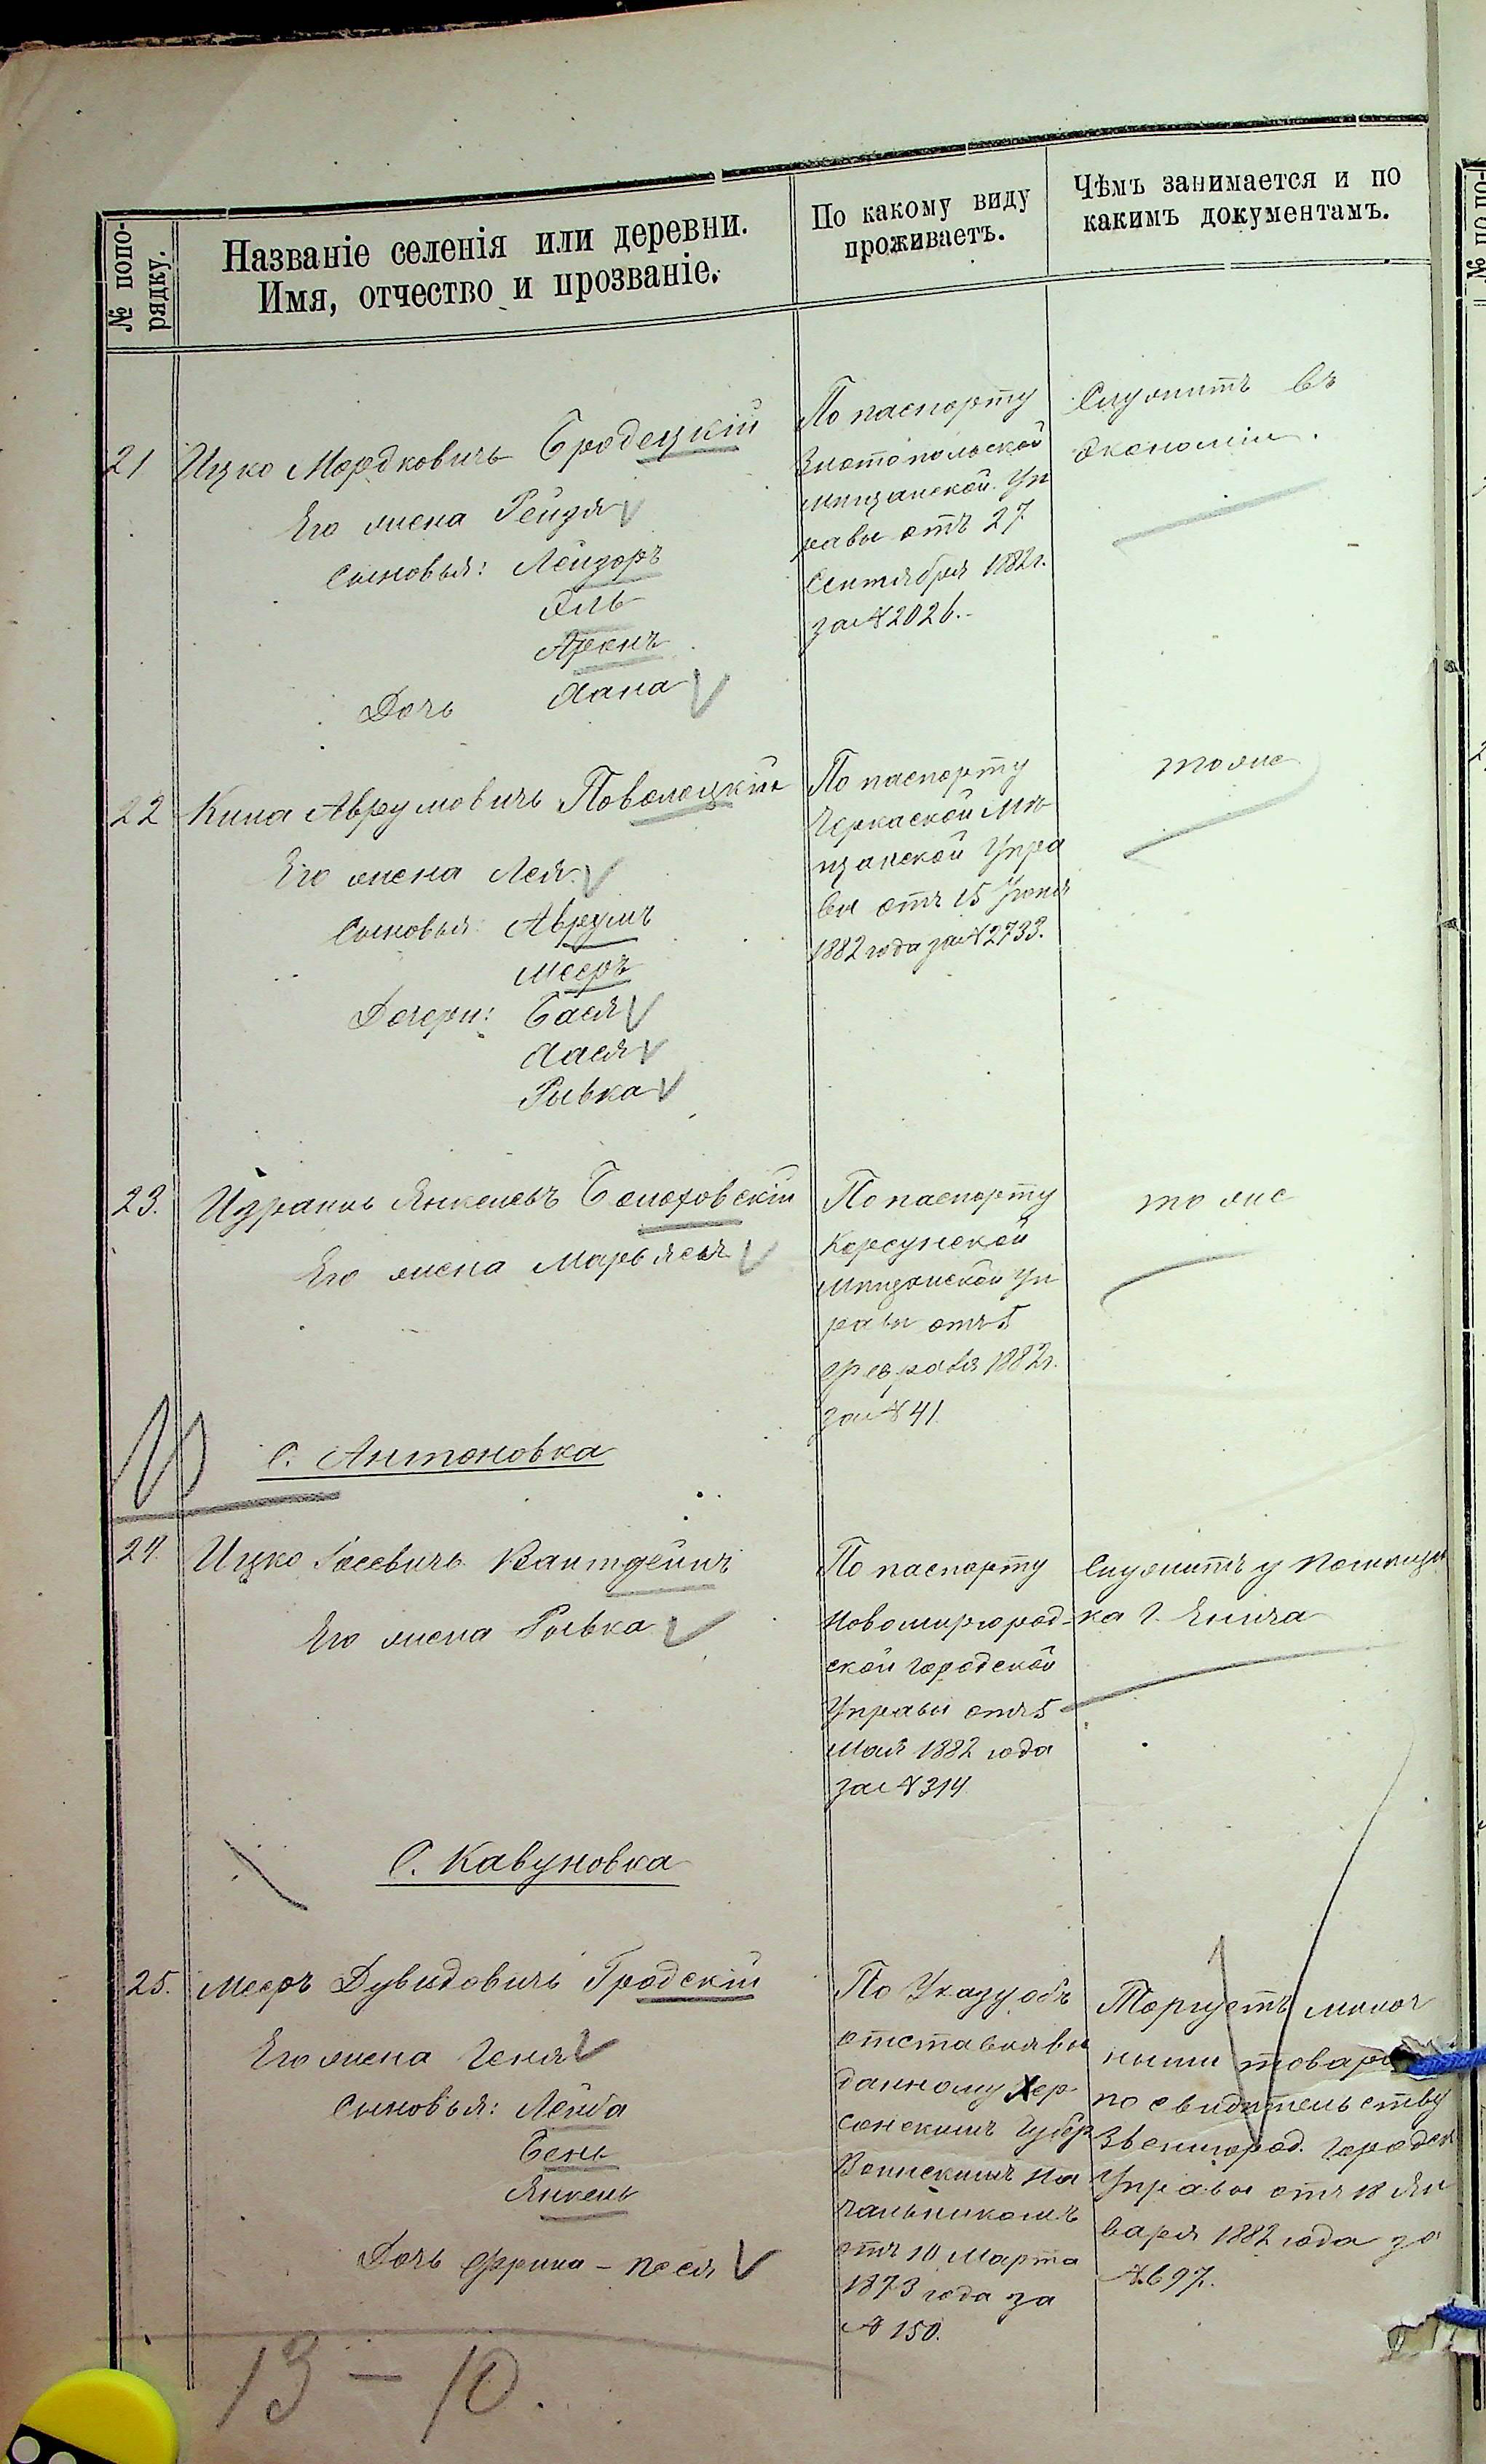 № попо-
рядку.
Названіе селенія или деревни.
Имя, отчество и прозваніе.
По какому виду
проживаетъ.
Чѣмъ занимается и по
какимъ документамъ.
21
Ицко Мордковичъ Бродецкій
Его жена Рейзя
Сыновья: Лейзоръ
Эль
Аронъ
Дочь Хана
По паспорту
Златопольской
Мѣщанской Уп
равы отъ 27
Сентября 1882 г.
за № 2026.
Служитъ въ
экономіи.
22
Аврумовичъ Поволоцкій
Его жена Лея
Сыновья: Аврумъ
Мееръ
Дочери: Бася
Хася
Рывка
По паспорту
Черкаской Мѣ
щанской Упра
вы отъ 15 Іюня
1882 года за № 2733.
тоже
23.
Израиль Янкелевъ Болоховскій
Его жена Марьяся
По паспорту
Корсунской
Мѣщанской Уп
равы отъ 5
февраля 1882 г.
за № 41
тоже
С. Антоновка
24.
Ицко
Его жена Рывка
По паспорту
Новомиргород-
ской городской
Управы отъ 5
Мая 1882 года
за № 314
Служитъ у Помѣщи
ка Г.
С. Кавуновка
25.
Мееръ Дувидовичъ Гродскій
Его жена Геня
Сыновья: Лейба
Бень
Янкель
Дочь Фрима - Песя
По Указу объ
отставкѣ вы
данному Хер
сонскимъ Губер
Воинскимъ На
чальникомъ
отъ 10 Марта
1873 года за
№ 150.
Торгуетъ мелоч
ными товара
по свидѣтельству
Звенигород. Городск
Управы отъ 18 Ян
варя 1882 года за
№ 697.
13 - 10.
№ по по-